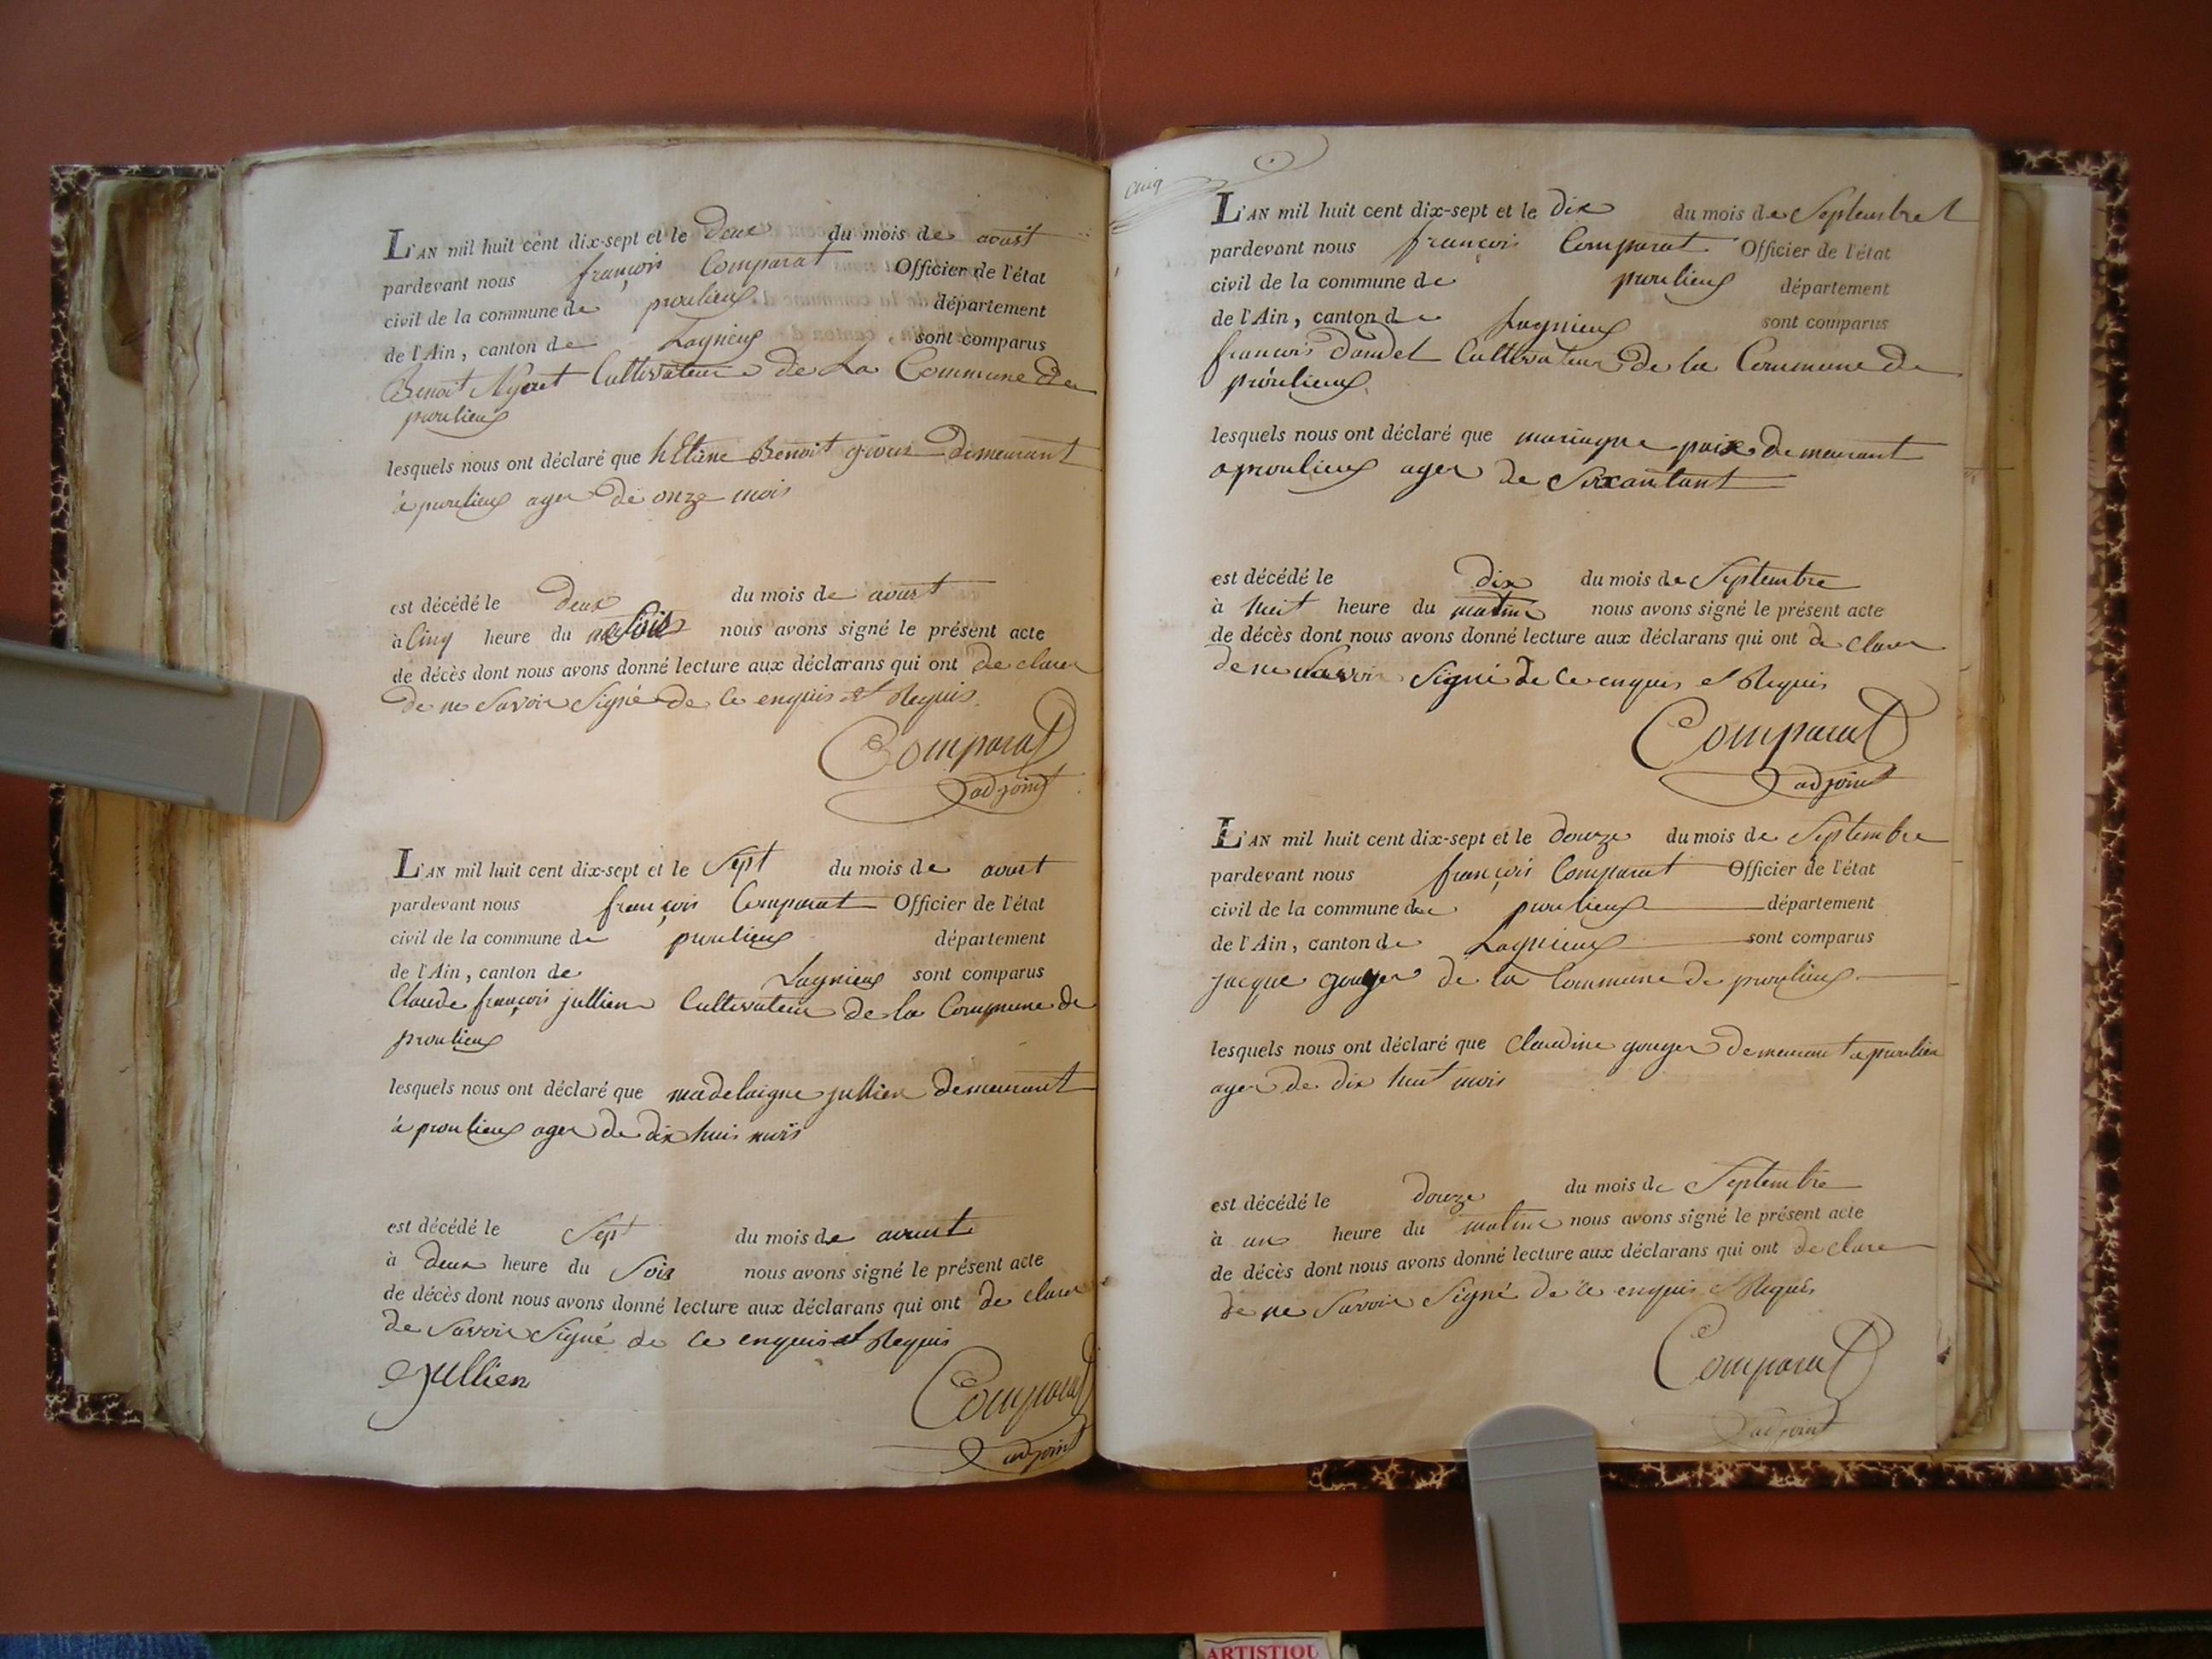 L'AN mil huit cent dix-sept et le Deux du mois de aoust
pardevant nous françois Comparat Officier de l'état
civil de la commune de proulieux département
de l'Ain, canton de Lagnieux sont comparus
Benoit Cultivateur de La Commune de
proulieux
lesquels nous ont déclaré que Benoit Demeurant
à proulieux ager De onze mois
est décédé le Deux du mois de aoust
à Cinq heure du Soir nous avons signé le présent acte
de décès dont nous avons donné lecture aux déclarans qui ont de clarer
De ne Savoir Signé de Ce enquis et Requis
Comparat
adjoint
L'AN mil huit cent dix-sept et le Sept du mois de aoust
pardevant nous françois Comparat Officier de l'état
civil de la commune de proulieux département
de l'Ain, canton de Lagnieux sont comparus
Claude françois jullien Cultivateur de la Commune de
proulieux
lesquels nous ont déclaré que madelaigne jullien demeurant
à proulieux ager de dix huis mois
est décédé le Sept du mois de aoust
à deux heure du Soir nous avons signé le présent acte
de décès dont nous avons donné lecture aux déclarans qui ont de clarer
de Savoir Signé de Ce enquis et Requis
Jullien
Comparat
adjoint
cinq
L'AN mil huit cent dix-sept et le Dix du mois de Septembre
pardevant nous françois Comparat Officier de l'état
civil de la commune de proulieux département
de l'Ain, canton de Lagnieux sont comparus
francois Daudet Cultivateur De la Commune de
proulieux
lesquels nous ont déclaré que mariagne paix demeurant
a proulieux ager de Soixantant
est décédé le dix du mois de Septembre
à huit heure du matin nous avons signé le présent acte
de décès dont nous avons donné lecture aux déclarans qui ont de clarer
de ne Savoir Signé de Ce enquis et Requis
Comparat
adjoint
L'AN mil huit cent dix-sept et le Douze du mois de Septembre
pardevant nous françois Comparat Officier de l'état
civil de la commune de proulieux département
de l'Ain, canton de Lagnieux sont comparus
jacque gouger de la Commune de proulieux
lesquels nous ont déclaré que Claudine gouger Demeurant a proulieu
ager de dix huit mois
est décédé le douze du mois de Septembre
à un heure du matin nous avons signé le présent acte
de décès dont nous avons donné lecture aux déclarans qui ont de clare
de ne Savoir Signé de Ce enquis et Requis
Comparat
adjoint
ARTISTIQU